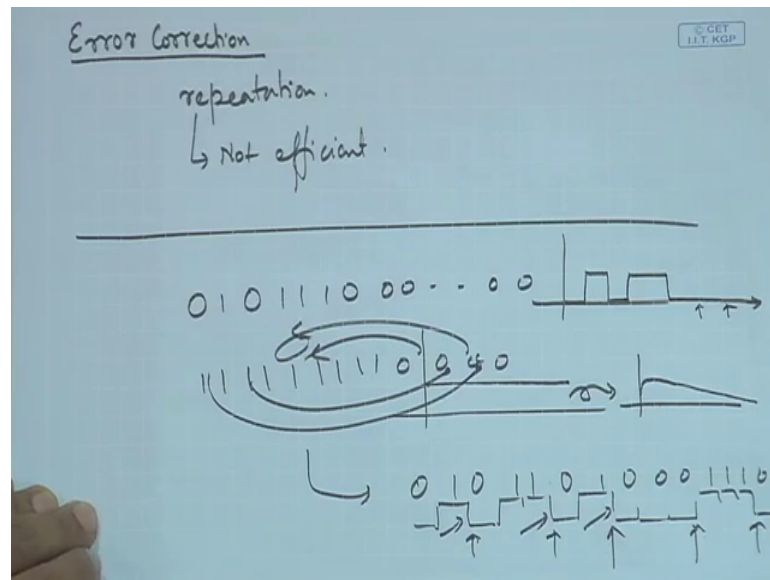 Error Correction
© CET
I.I.T. KGP
repeatation.
Not efficient.
0 1 0 1 1 1 0 0 0 - - 0 0
0
1 1 1 1 1 1 1 1 0 0 0 0
0 1 0 1 1 0 1 0 0 0 1 1 1 0